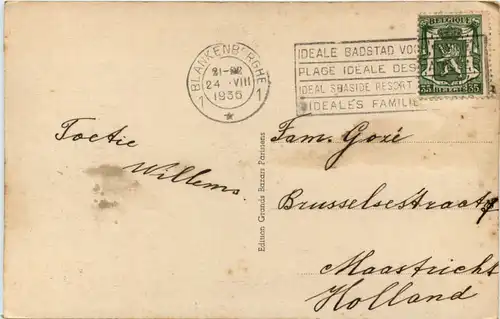 BLANKENBERGHE
24 VIII
1936
1 1
IDEALE BADSTAD VOO
PLAGE IDEALE DES
IDEAL SEASIDE RESORT
IDEALES FAMILI
BELGIQUE
35 BELGIE 35
Toetie
Willems
Edition Grands Bazars Parisiens
Fam. Gozé
Brusselsestraat
Maastricht
Holland